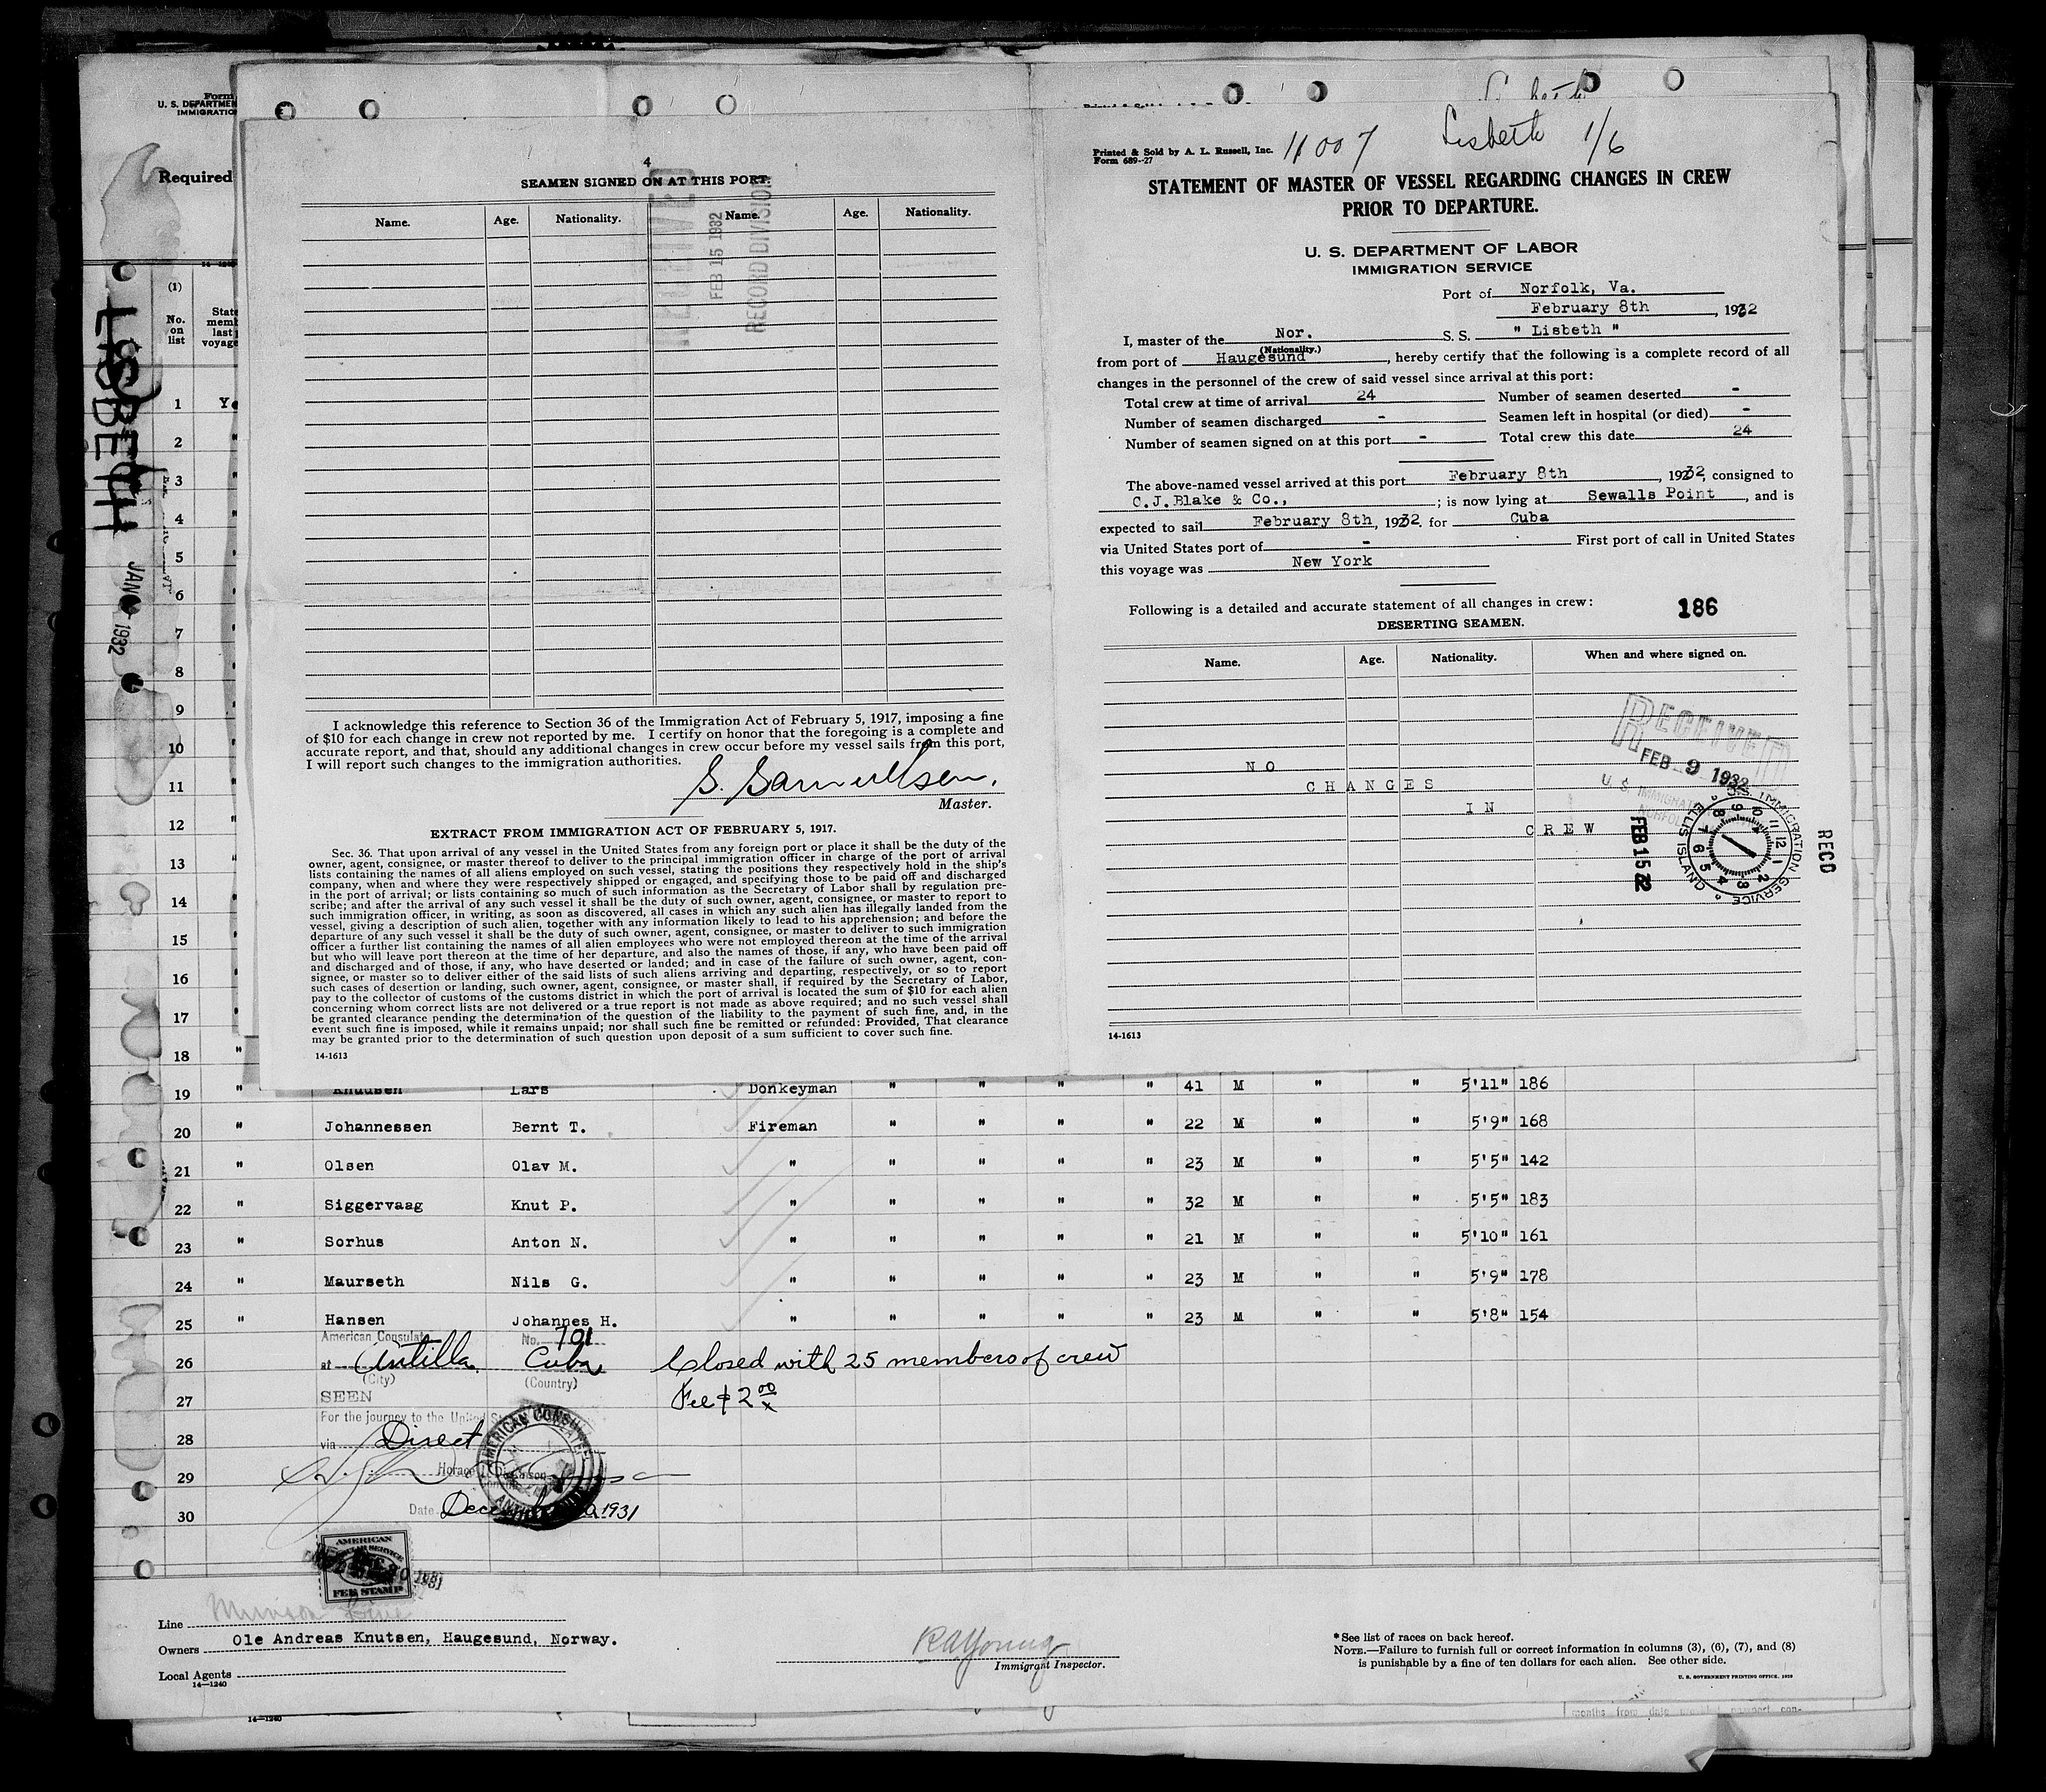 Form
U. S. DEPARTMEN
IMMIGRATIO
Required
(1)
No. on list
State
memb
last
voyage
LISBETH
JAN 1932
1 Y
2 "
3 "
4 "
5 "
6 "
7 "
8 "
9 "
10 "
11 "
12 "
13 "
14 "
15 "
16 "
17 "
18 "
4
SEAMEN SIGNED ON AT THIS PORT.
Name. Age. Nationality. Name. Age. Nationality.
FEB 15 1932
RECORD DIVISION
I acknowledge this reference to Section 36 of the Immigration Act of February 5, 1917, imposing a fine
of $10 for each change in crew not reported by me. I certify on honor that the foregoing is a complete and
accurate report, and that, should any additional changes in crew occur before my vessel sails from this port,
I will report such changes to the immigration authorities.
S. Samuelsen,
Master.
EXTRACT FROM IMMIGRATION ACT OF FEBRUARY 5, 1917.
Sec. 36. That upon arrival of any vessel in the United States from any foreign port or place it shall be the duty of the
owner, agent, consignee, or master thereof to deliver to the principal immigration officer in charge of the port of arrival
lists containing the names of all aliens employed on such vessel, stating the positions they respectively hold in the ship's
company, when and where they were respectively shipped or engaged, and specifying those to be paid off and discharged
in the port of arrival; or lists containing so much of such information as the Secretary of Labor shall by regulation pre-
scribe; and after the arrival of any such vessel it shall be the duty of such owner, agent, consignee, or master to report to
such immigration officer, in writing, as soon as discovered, all cases in which any such alien has illegally landed from the
vessel, giving a description of such alien, together with any information likely to lead to his apprehension; and before the
departure of any such vessel it shall be the duty of such owner, agent, consignee, or master to deliver to such immigration
officer a further list containing the names of all alien employees who were not employed thereon at the time of the arrival
but who will leave port thereon at the time of her departure, and also the names of those, if any, who have been paid off
and discharged and of those, if any, who have deserted or landed; and in case of the failure of such owner, agent, con-
signee, or master so to deliver either of the said lists of such aliens arriving and departing, respectively, or so to report
such cases of desertion or landing, such owner, agent, consignee, or master shall, if required by the Secretary of Labor,
pay to the collector of customs of the customs district in which the port of arrival is located the sum of $10 for each alien
concerning whom correct lists are not delivered or a true report is not made as above required; and no such vessel shall
be granted clearance pending the determination of the question of the liability to the payment of such fine, and, in the
event such fine is imposed, while it remains unpaid; nor shall such fine be remitted or refunded: Provided, That clearance
may be granted prior to the determination of such question upon deposit of a sum sufficient to cover such fine.
14-1613
Printed & Sold by A. L. Russell, Inc.
Form 689--27
11007 Lisbeth 1/6
STATEMENT OF MASTER OF VESSEL REGARDING CHANGES IN CREW
PRIOR TO DEPARTURE.
U. S. DEPARTMENT OF LABOR
IMMIGRATION SERVICE
Port of Norfolk, Va.
February 8th, 1932
I, master of the Nor. S. S. " Lisbeth "
(Nationality.)
from port of Haugesund, hereby certify that the following is a complete record of all
changes in the personnel of the crew of said vessel since arrival at this port:
Total crew at time of arrival 24 Number of seamen deserted -
Number of seamen discharged - Seamen left in hospital (or died) -
Number of seamen signed on at this port - Total crew this date 24
The above-named vessel arrived at this port February 8th, 1932, consigned to
C.J.Blake & Co., ; is now lying at Sewalls Point, and is
expected to sail February 8th, 1932 for Cuba
via United States port of - First port of call in United States
this voyage was New York
Following is a detailed and accurate statement of all changes in crew:
186
DESERTING SEAMEN.
Name. Age. Nationality. When and where signed on.
NO
CHANGES
IN
CREW
RECEIVED
FEB 9 1932
U. S. IMMIGRATI
NORFOL
U.S. IMMIGRATION SERVICE
ELLIS ISLAND
12 1 2 3 4 5 6 7 8 9 10 11
FEB 15 32
RECD
14-1613
19 " Knudsen Lars Donkeyman " " " " 41 M " " 5'11" 186
20 " Johannessen Bernt T. Fireman " " " " 22 M " " 5'9" 168
21 " Olsen Olav M. " " " " " 23 M " " 5'5" 142
22 " Siggervaag Knut P. " " " " " 32 M " " 5'5" 183
23 " Sorhus Anton N. " " " " " 21 M " " 5'10" 161
24 " Maurseth Nils G. " " " " " 23 M " " 5'9" 178
25 " Hansen Johannes H. " " " " " 23 M " " 5'8" 154
American Consulat No. 701
26 at Antilla Cuba Closed with 25 members of crew
(City) (Country)
27 SEEN Fee $2.00
For the journey to the United S
28 via Direct
29
Date Dece 1931
30
AMERICAN CONSULATE
AMERICAN
SERVICE
FEE STAMP
1931
Line Munson Line
Owners Ole Andreas Knutsen, Haugesund, Norway.
Local Agents
14—1240
R A Young
Immigrant Inspector.
* See list of races on back hereof.
NOTE.—Failure to furnish full or correct information in columns (3), (6), (7), and (8)
is punishable by a fine of ten dollars for each alien. See other side.
U. S. GOVERNMENT PRINTING OFFICE. 1929
14—1240
months from date